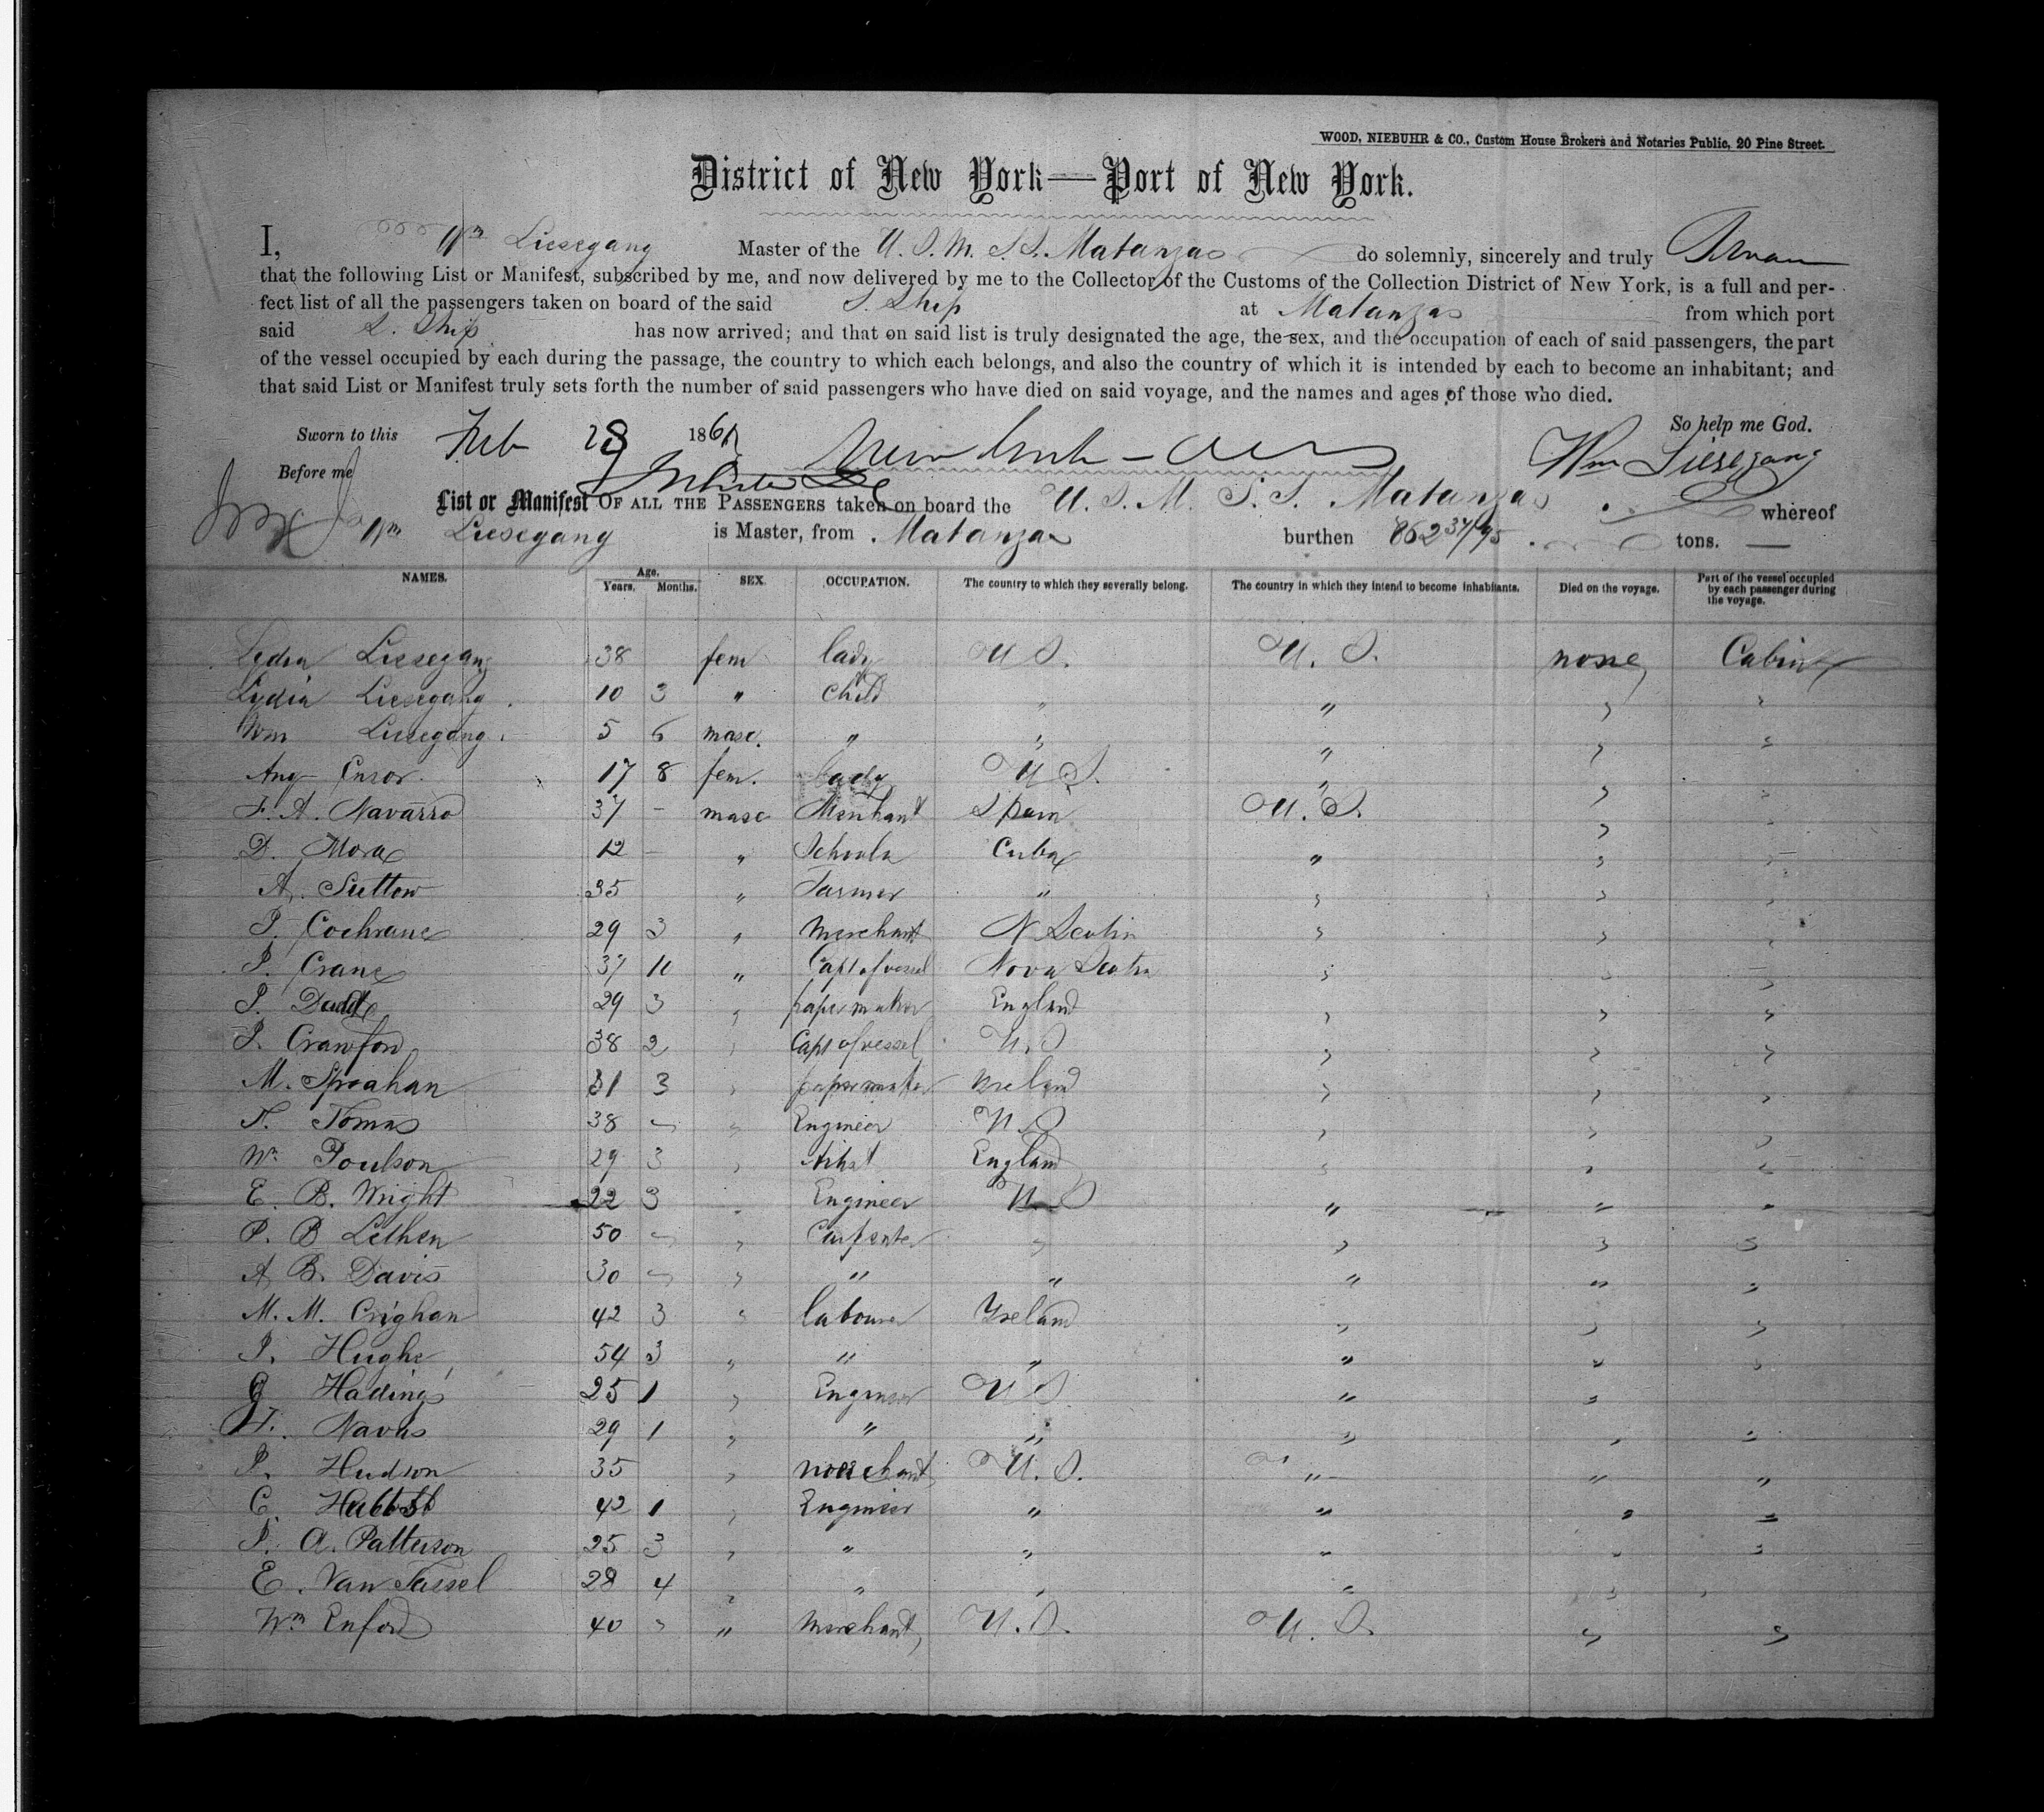 WOOD, NIEBUHR & CO., Custom House Brokers and Notaries Public, 20 Pine Street.
District of New York—Port of New York.
I, Wm Liesegang Master of the U. S. M. S. S. Matanzas do solemnly, sincerely and truly Swear
that the following List or Manifest, subscribed by me, and now delivered by me to the Collector of the Customs of the Collection District of New York, is a full and per-
fect list of all the passengers taken on board of the said S. Ship at Matanzas from which port
said S. Ship has now arrived; and that on said list is truly designated the age, the sex, and the occupation of each of said passengers, the part
of the vessel occupied by each during the passage, the country to which each belongs, and also the country of which it is intended by each to become an inhabitant; and
that said List or Manifest truly sets forth the number of said passengers who have died on said voyage, and the names and ages of those who died.
So help me God.
Sworn to this Feb 28 186
Wm Liesegang
Before me
List or Manifest OF ALL THE PASSENGERS taken on board the U. S. M. S. S. Matanzas whereof
Wm Liesegang is Master, from Matanzas burthen 862 37/95 tons.
NAMES. Age. Years. Months. SEX. OCCUPATION. The country to which they severally belong. The country in which they intend to become inhabitants. Died on the voyage. Part of the vessel occupied by each passenger during the voyage.
Lydia Liesegang 38 fem lady U S. U. S. none Cabin
Lydia Liesegang 10 3 " child " " " "
Wm Liesegang 5 6 masc. " " " " "
Ang Ensor 17 8 fem. lady U S. " " "
F. A. Navarro 37 - masc Merchant Spain U. S. " "
D. Mora 12 - " Cuba " " "
A. Sutton 35 " Farmer " " " "
P. Cochrane 29 3 " merchant N Scotia " " "
P. Crane 37 " Capt of vessel Nova Scotia " " "
29 3 " paper maker England " " "
P. Crawford 38 2 " Capt of vessel U. S " " "
M. Sproahan 31 3 " paper maker Ireland " " "
Tomas 38 " " Engineer U. S " " "
Wm Poulson 29 3 " Artist England " " "
E. B. Wright 22 3 " Engineer U S " " "
P. B Lethen 50 " " Carpenter " " " "
A B. Davis 30 " " " " " " "
M. M. Crighan 42 3 " labourer Yreland " " "
P. Hughe 54 3 " " " " " "
G Hadings 25 1 " Engineer U S " "
Navus 29 1 " " " " " "
P. Hudson 35 " merchant U. S. " " "
C. 42 1 " Engineer " " " "
P. A. Patterson 25 3 " " " " " "
E. Van Tassel 28 4 " " " " " "
Wm Enford 40 " " Merchant U. S. U. S. " "